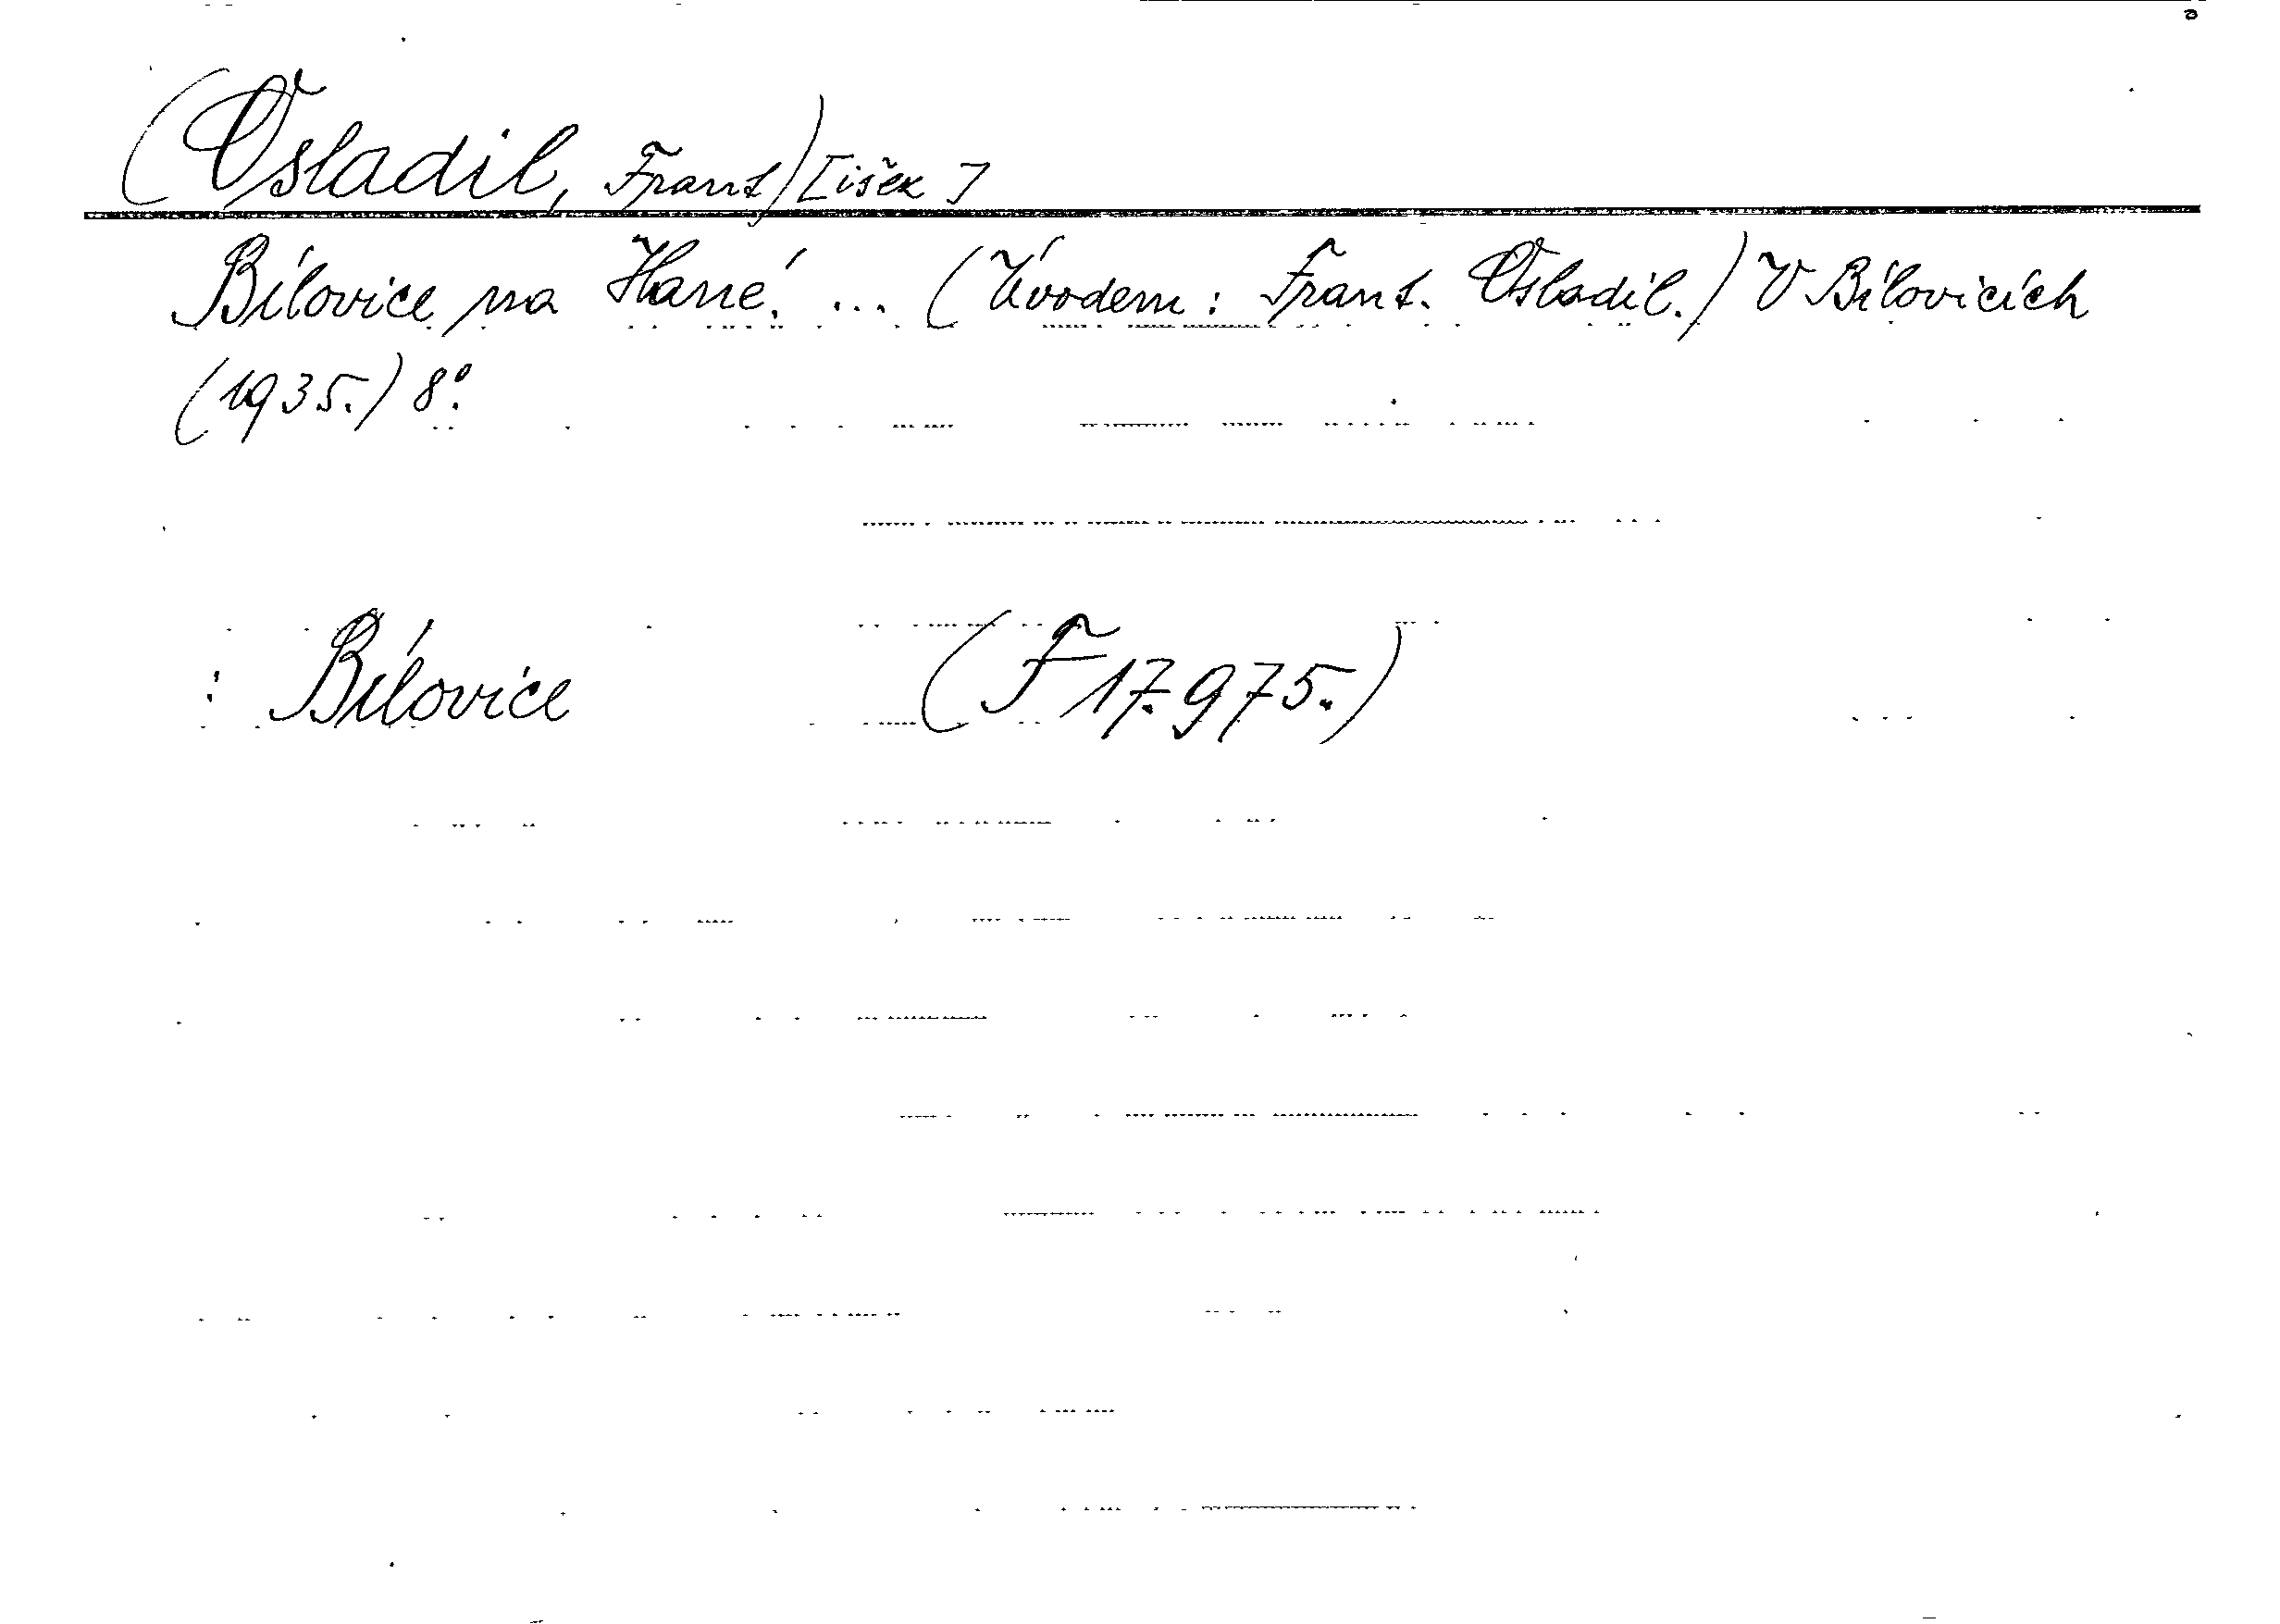 (Osladil, Frant)[išek]
Bílovice na Hané. ... (Úvodem: Frant. Osladil.) V Bílovicích
(1935.) 8º.
: Bílovice (F 17.975.)